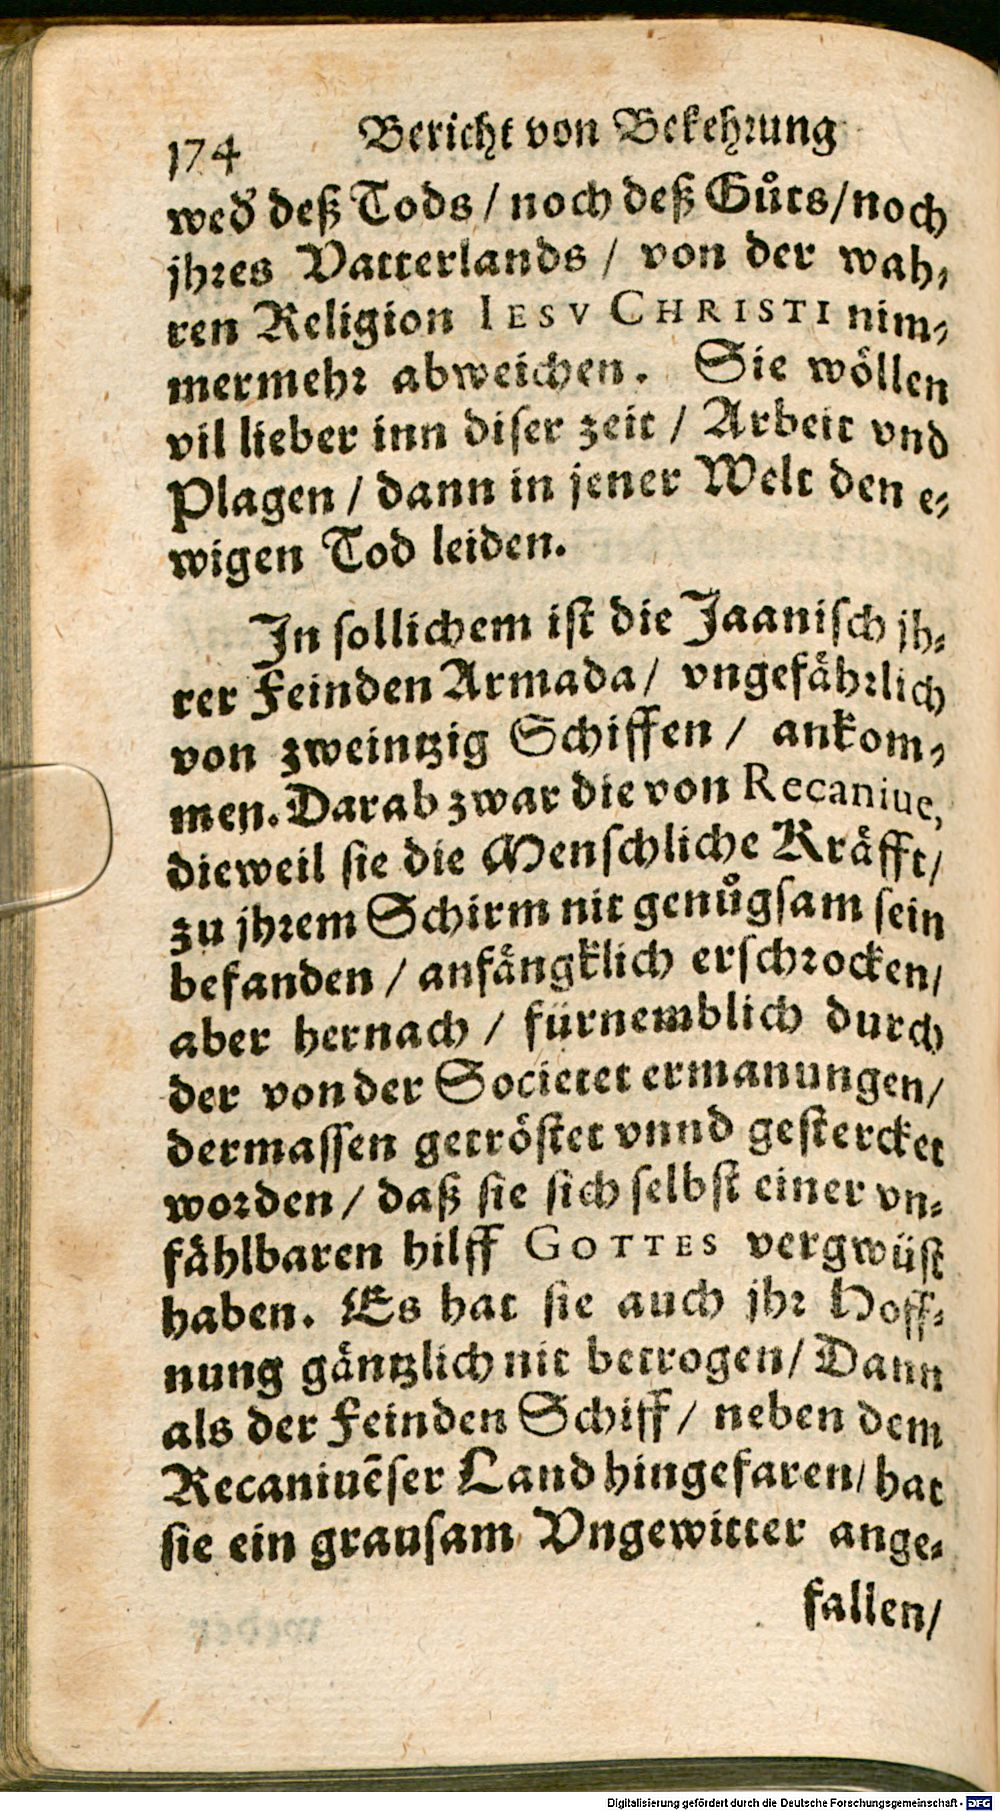 174 Bericht von Bekehrung
wed̃ deß Tods / noch deß Gůts / noch
jhres Vatterlands / von der wah⸗
ren Religion IESV CHRISTI nim⸗
mermehr abweichen. Sie wöllen
vil lieber inn diser zeit / Arbeit vnd
Plagen / dann in jener Welt den e⸗
wigen Tod leiden.
In sollichem ist die Jaanisch jh⸗
rer Feinden Armada / vngefåhrlich
von zweintzig Schiffen / ankom⸗
men. Darab zwar die von Recaniue,
dieweil sie die Menschliche Kräfft /
zu jhrem Schirm nit genůgsam sein
befanden / anfängklich erschrocken /
aber hernach / fürnemblich durch
der von der Societet ermanungen /
dermassen getröstet vnnd gestercket
worden / daß sie sich selbst einer vn⸗
fåhlbaren hilff GOTTES vergwüst
haben. Es hat sie auch jhr Hoff⸗
nung gäntzlich nit betrogen / Dann
als der Feinden Schiff / neben dem
Recaniuẽser Land hingefaren / hat
sie ein grausam Vngewitter ange⸗
fallen /
Digitalisierung gefördert durch die Deutsche Forschungsgemeinschaft - DFG